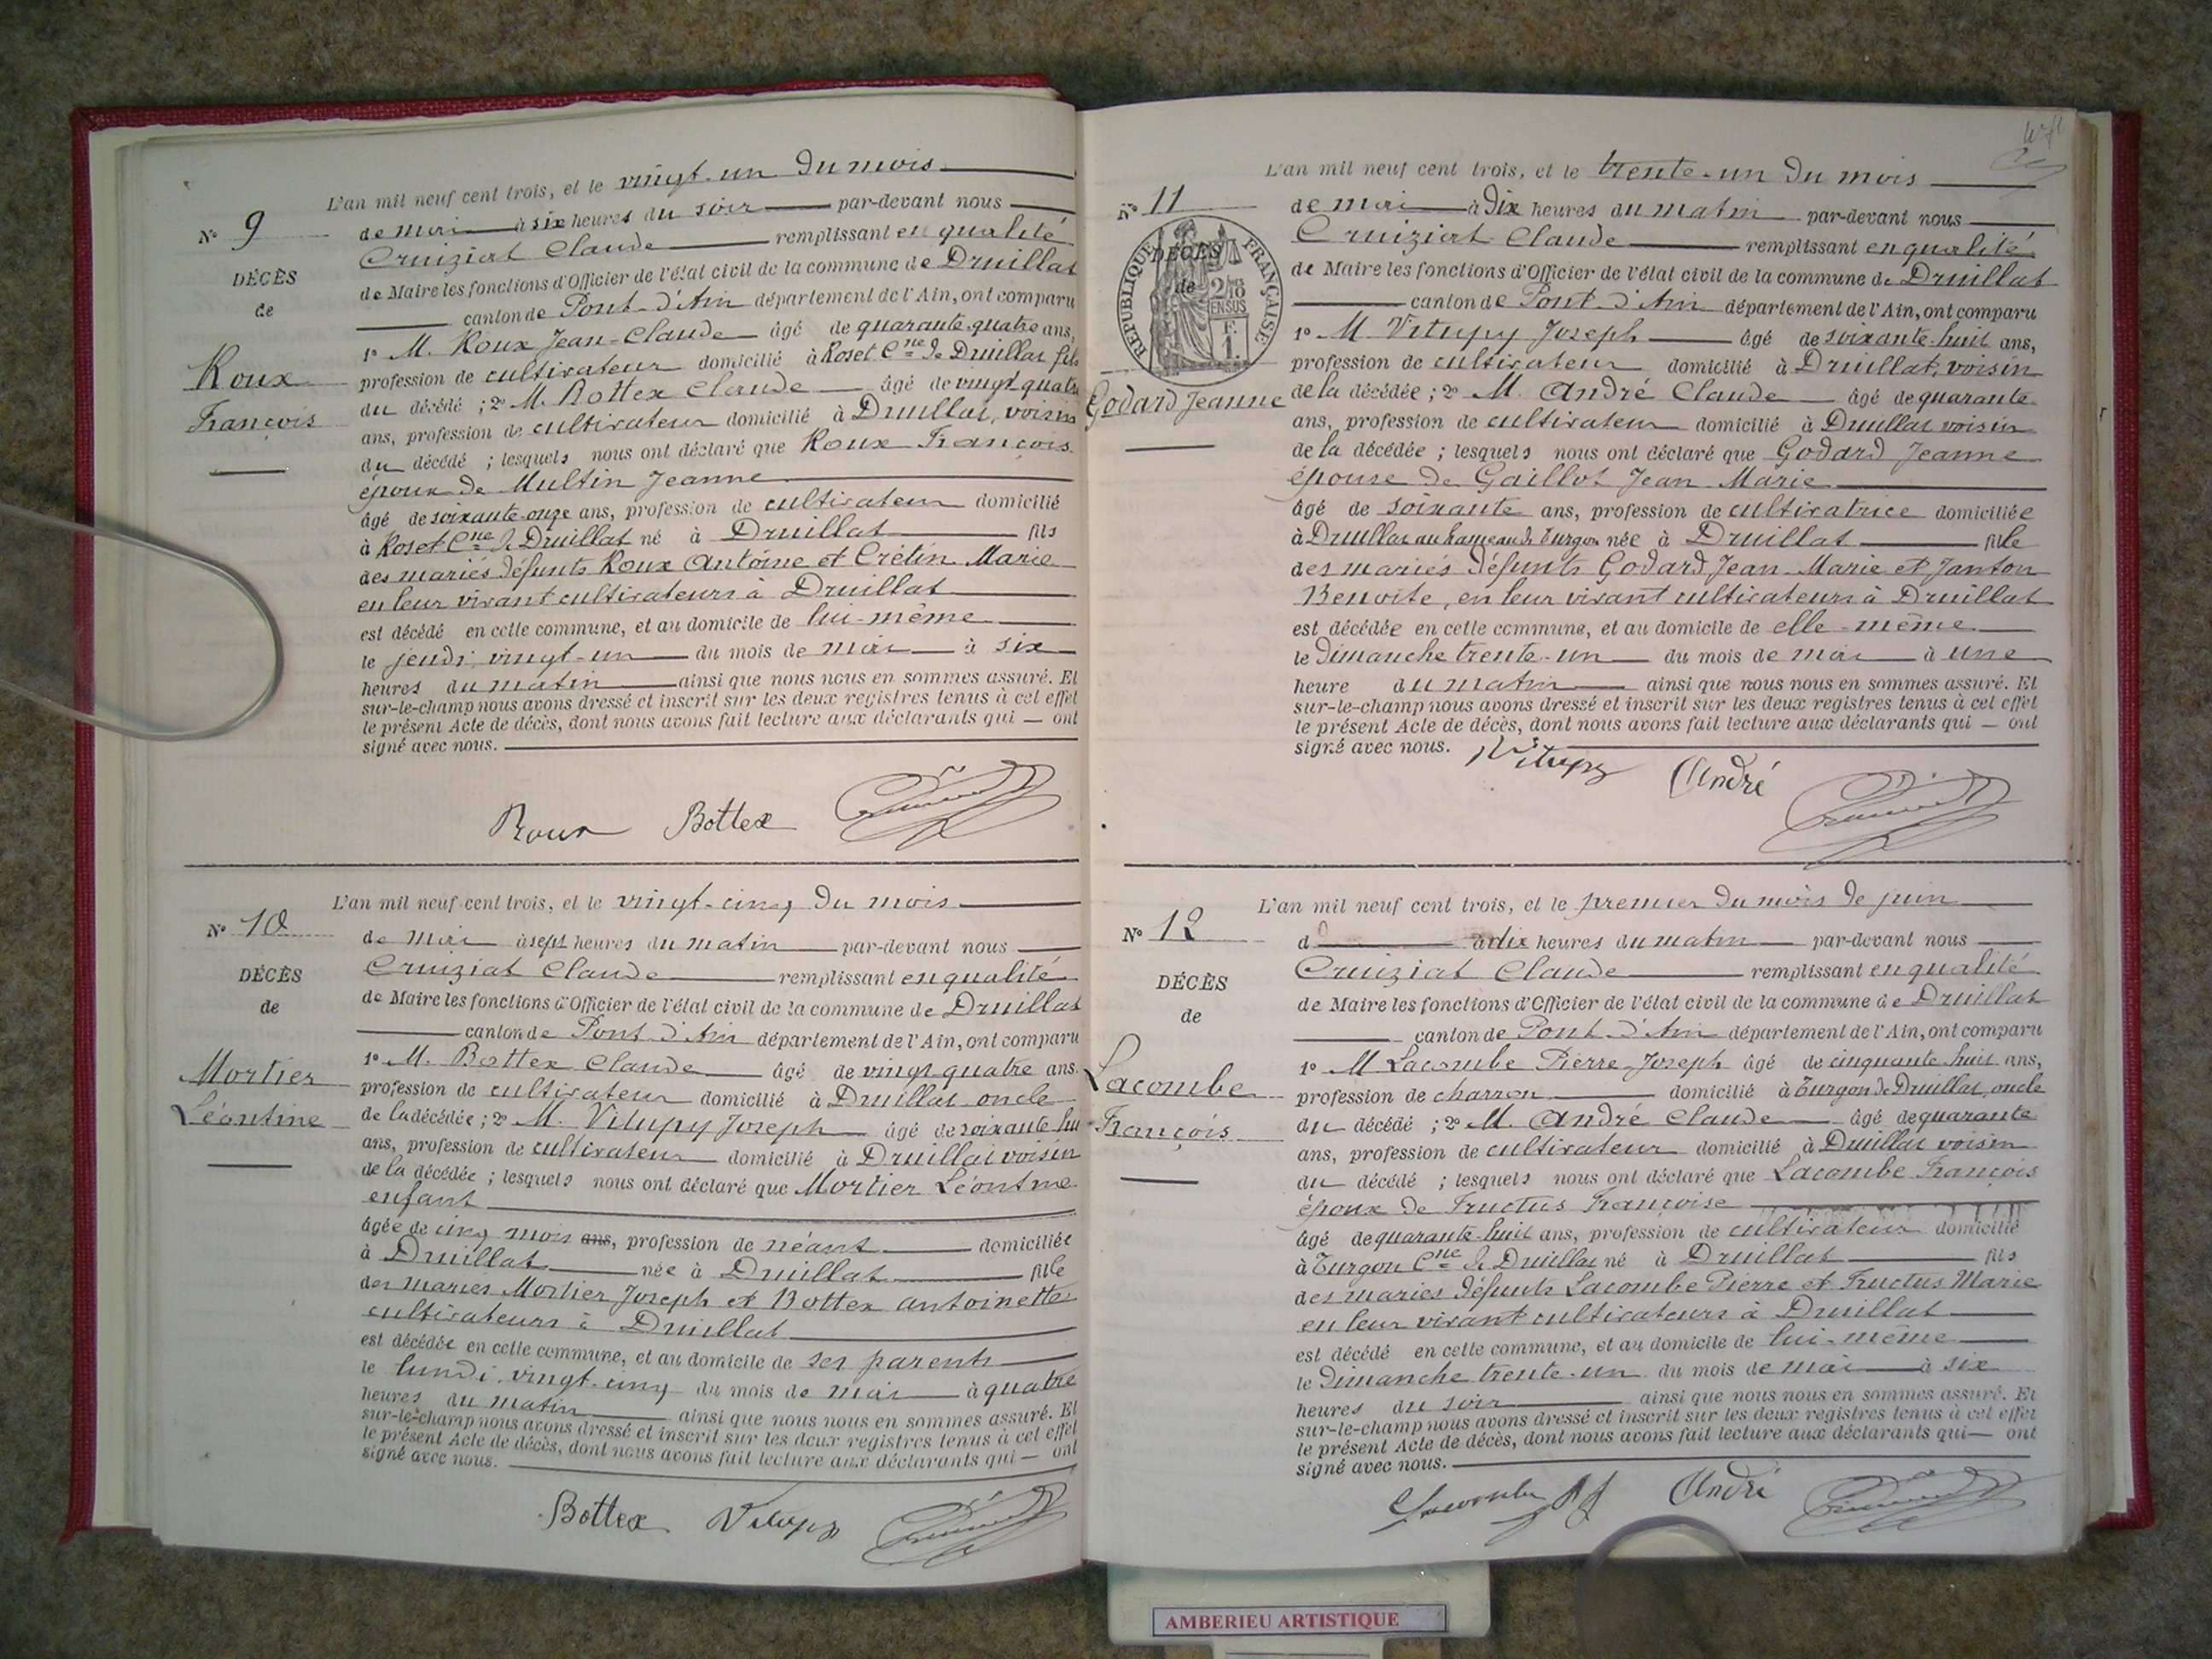 L'an mil neuf cent trois, et le vingt-un du mois
Nº 9
de mai à six heures du soir par-devant nous
Cruiziat Claude remplissant en qualité
DÉCÈS
de Maire les fonctions d'Officier de l'état civil de la commune de Druillat
de
canton de Pont-d'Ain département de l'Ain, ont comparu
1º M. Roux Jean-Claude âgé de quarante-quatre ans,
Roux
profession de cultivateur domicilié à Roset Cne de Druillat fils
du décédé ; 2º M. Bottex Claude âgé de vingt quatre
François
ans, profession de cultivateur domicilié à Druillat, voisin
du décédé ; lesquels nous ont déclaré que Roux François
époux de Multin Jeanne
âgé de soixante-onze ans, profession de cultivateur domicilié
à Roset Cne de Druillat né à Druillat fils
des mariés défunts Roux Antoine et Crétin Marie
en leur vivant cultivateurs à Druillat
est décédé en cette commune, et au domicile de lui-même
le jeudi vingt-un du mois de mai à six
heures du matin ainsi que nous nous en sommes assuré. Et
sur-le-champ nous avons dressé et inscrit sur les deux registres tenus à cet effet
le présent Acte de décès, dont nous avons fait lecture aux déclarants qui — ont
signé avec nous.
Roux Bottex
L'an mil neuf cent trois, et le vingt-cinq du mois
Nº 10
de mai à sept heures du matin par-devant nous
Cruiziat Claude remplissant en qualité
DÉCÈS
de Maire les fonctions d'Officier de l'état civil de la commune de Druillat
de
canton de Pont-d'Ain département de l'Ain, ont comparu
1º M. Bottex Claude âgé de vingt quatre ans,
Mortier
profession de cultivateur domicilié à Druillat oncle
Léontine
de la décédée ; 2º M. Vitupy Joseph âgé de soixante hui
ans, profession de cultivateur domicilié à Druillat voisin
de la décédée ; lesquels nous ont déclaré que Mortier Léontine
enfant
âgée de cinq mois ans, profession de néant domiciliée
à Druillat née à Druillat fille
des mariés Mortier Joseph et Bottex Antoinette
cultivateurs à Druillat
est décédée en cette commune, et au domicile de ses parents
le lundi vingt-cinq du mois de mai à quatre
heures du matin ainsi que nous nous en sommes assuré. Et
sur-le-champ nous avons dressé et inscrit sur les deux registres tenus à cet effet
le présent Acte de décès, dont nous avons fait lecture aux déclarants qui — ont
signé avec nous.
Bottex Vitupy
L'an mil neuf cent trois, et le trente-un du mois
Nº 11
de mai à dix heures du matin par-devant nous
Cruiziat Claude remplissant en qualité
RÉPUBLIQUE FRANÇAISE
DÉCÈS
de Maire les fonctions d'Officier de l'état civil de la commune de Druillat
de
2/10 EN SUS
canton de Pont-d'Ain département de l'Ain, ont comparu
F.
1.
1º M Vitupy Joseph âgé de soixante-huit ans,
profession de cultivateur domicilié à Druillat, voisin
Godard Jeanne
de la décédée ; 2º M. André Claude âgé de quarante
ans, profession de cultivateur domicilié à Druillat voisin
de la décédée ; lesquels nous ont déclaré que Godard Jeanne
épouse de Gaillot Jean-Marie
âgé de soixante ans, profession de cultivatrice domiciliée
à Druillat au hameau de Turgon née à Druillat fille
des mariés défunts Godard Jean-Marie et Janton
Benoite, en leur vivant cultivateurs à Druillat
est décédée en cette commune, et au domicile de elle-même
le dimanche trente-un du mois de mai à une
heure du matin ainsi que nous nous en sommes assuré. Et
sur-le-champ nous avons dressé et inscrit sur les deux registres tenus à cet effet
le présent Acte de décès, dont nous avons fait lecture aux déclarants qui — ont
signé avec nous.
Vitupy André
L'an mil neuf cent trois, et le premier du mois de juin
Nº 12
d à dix heures du matin par-devant nous
Cruiziat Claude remplissant en qualité
DÉCÈS
de Maire les fonctions d'Officier de l'état civil de la commune de Druillat
de
canton de Pont-d'Ain département de l'Ain, ont comparu
1º M Lacombe Pierre-Joseph âgé de cinquante-huit ans,
Lacombe
profession de charron domicilié à Turgon de Druillat, oncle
François
du décédé ; 2º M. André Claude âgé de quarante
ans, profession de cultivateur domicilié à Druillat voisin
du décédé ; lesquels nous ont déclaré que Lacombe François
époux de Fructus Françoise
âgé de quarante-huit ans, profession de cultivateur domicilié
à Turgon Cne de Druillat né à Druillat fils
des mariés défunts Lacombe Pierre et Fructus Marie
en leur vivant cultivateurs à Druillat
est décédé en cette commune, et au domicile de lui-même
le dimanche trente-un du mois de mai à six
heures du soir ainsi que nous nous en sommes assuré. Et
sur-le-champ nous avons dressé et inscrit sur les deux registres tenus à cet effet
le présent Acte de décès, dont nous avons fait lecture aux déclarants qui — ont
signé avec nous.
Lacombe André
AMBERIEU ARTISTIQUE